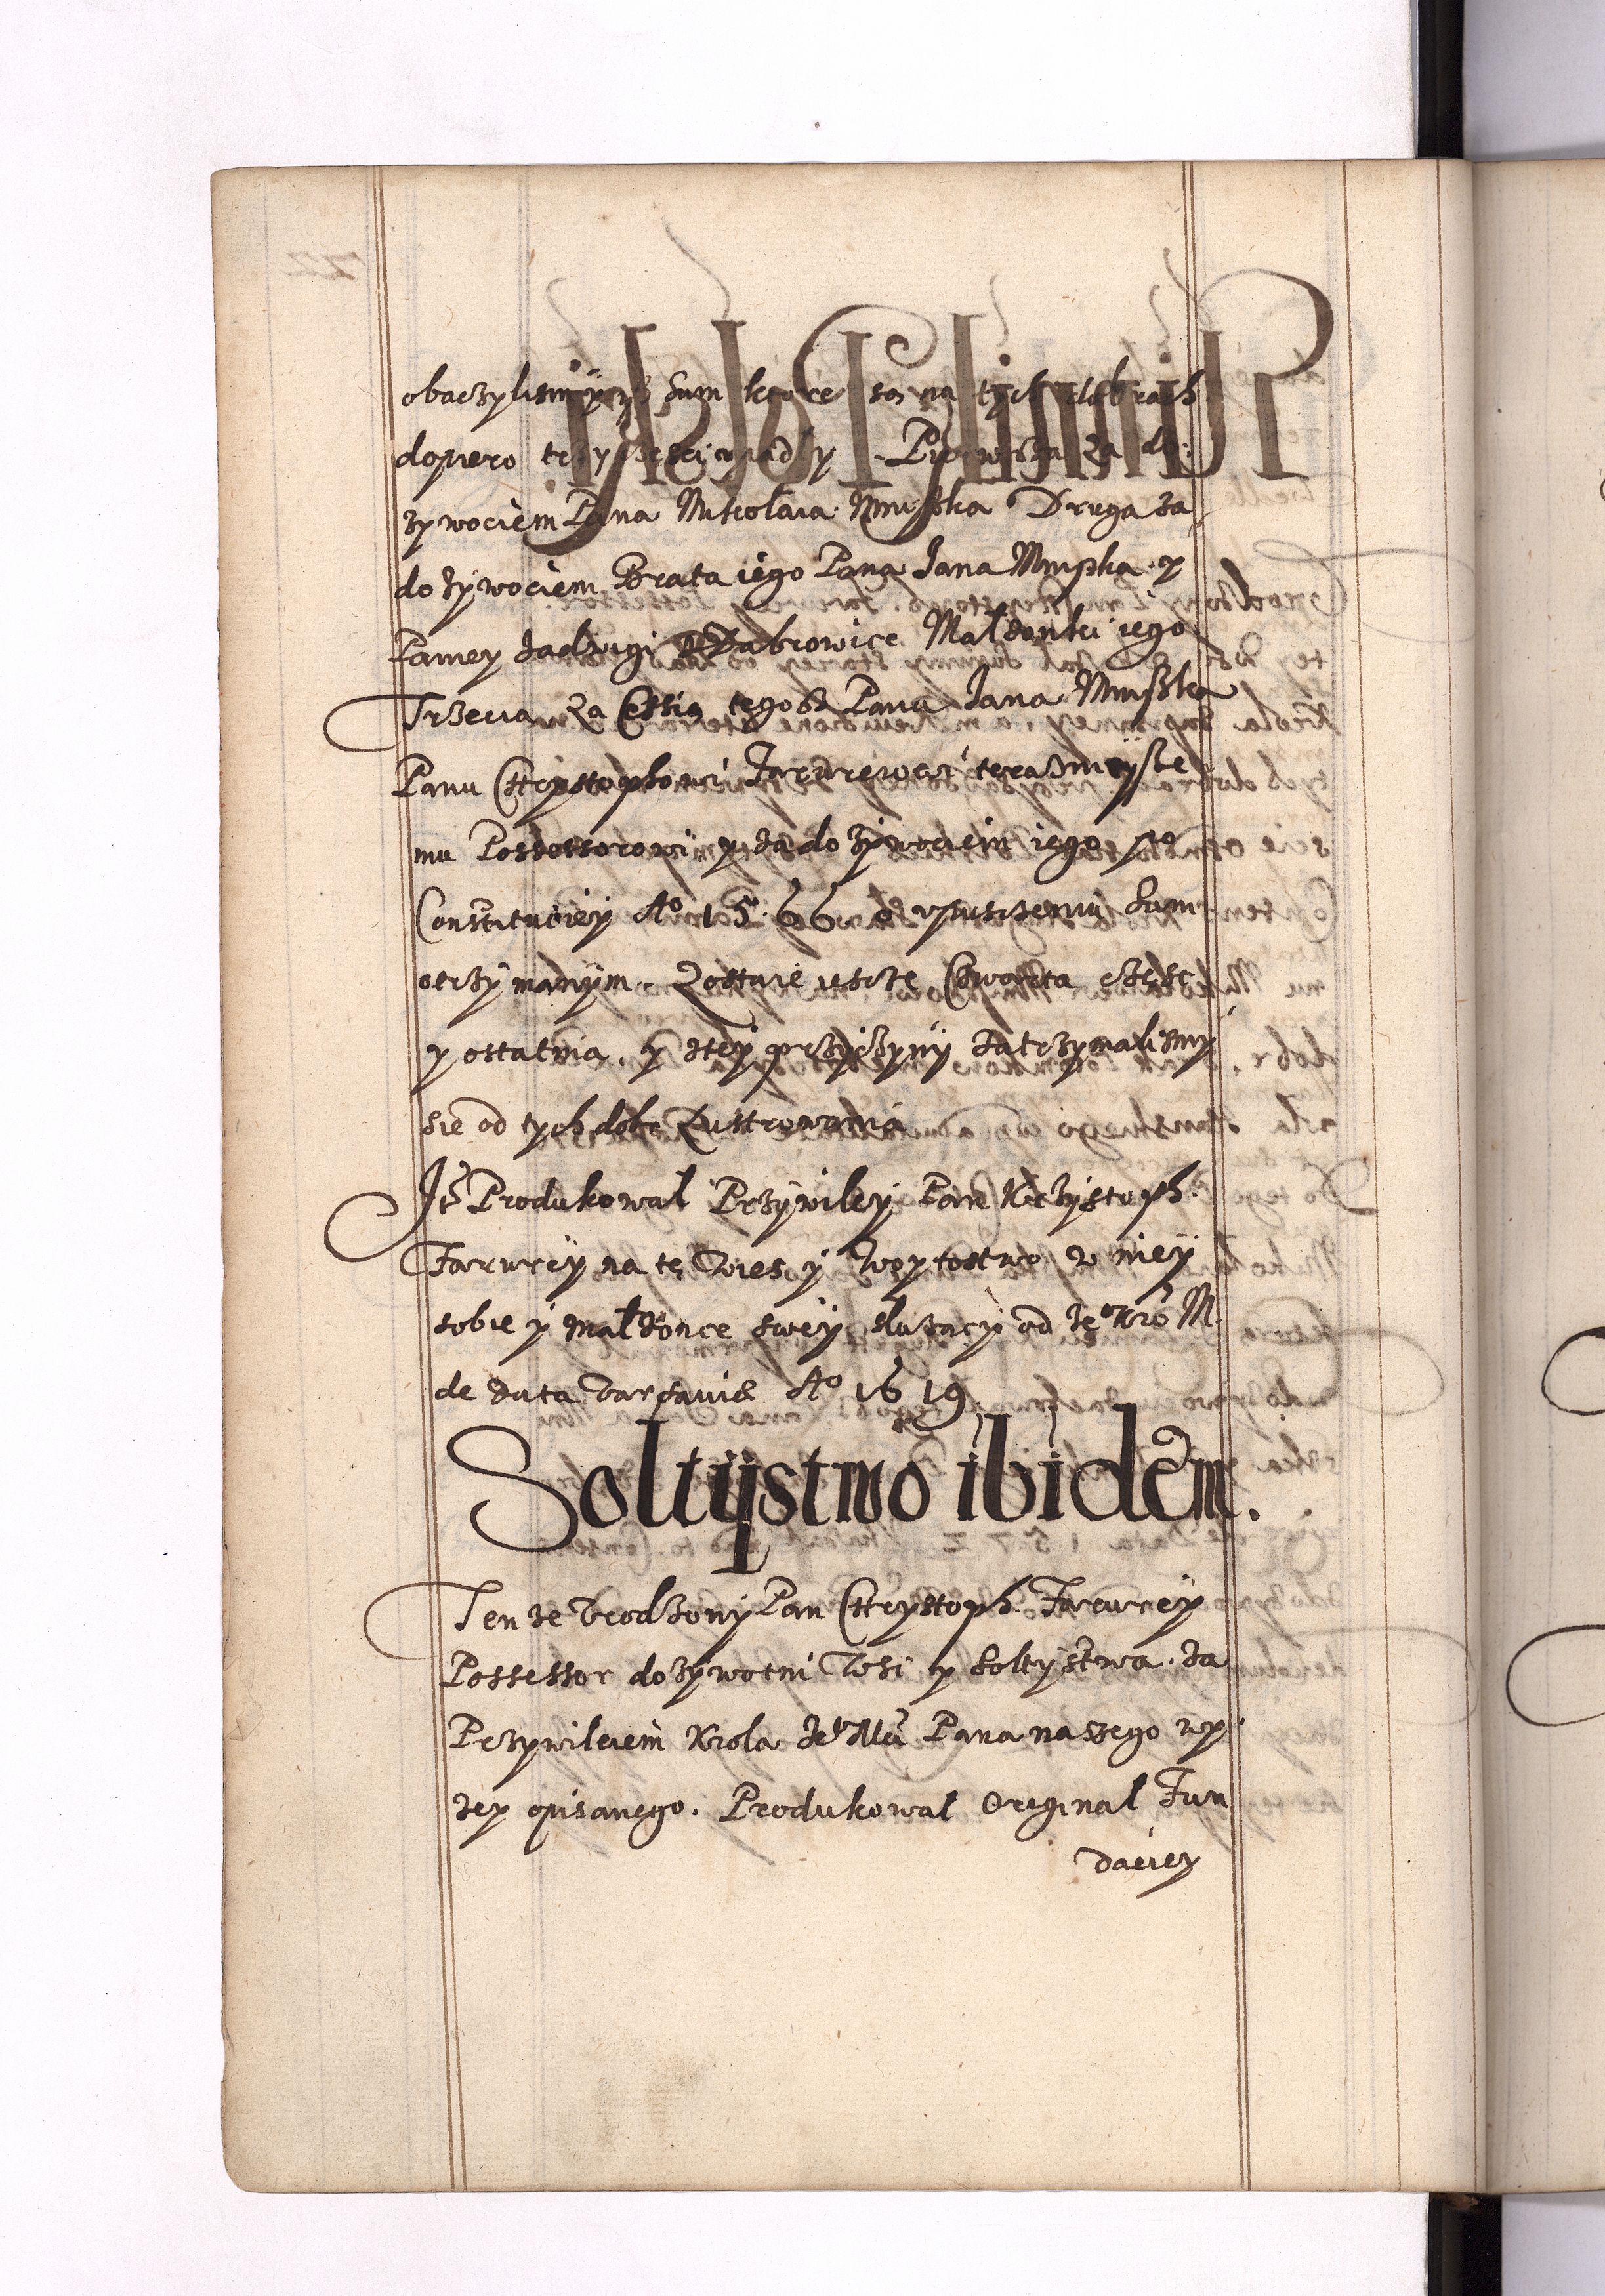 obaczylismy yz Sum ktore są na tych dobrach
dopiero trzy części upadły. Pierwsza za do:
zywociem Pana Mikołaia Mnyszka Druga za
dozywociem Brata iego Pana Jana Mnyszka y
Paniey Jadwigi Dąbrowice Małzonki iego
Trzecia Za Cessią tegosz Pana Jana Mnyszka
Panu Chrystophowi Farureiowi teraznieysze
mu Possessorowi y za dozywociem iego po
Constituciey A° 1566 o vpuszczeniu Sum
otrzymanym. Zostaie iescze Czwarta część
y ostatnia, y ztey przyczyny zatrzymalismy
sie od tych dobr Lustrowania
Ite Produkował Przywiley Pan Krzystoph
Farurey na tę Wies y Woytostwo w niey
sobie y małzonce swey słuzacy od Je° Kro M.
de data Varsauiæ A° 1619
Soltystwo ibidem.
Tenze Vrodzony Pan Chrystoph Farurey
Possessor dozywotni Wsi y Soltystwa, za
Przywileiem Krola Je° Mci Pana naszego wy
zey opisanego. Produkował Original Fun
daciey